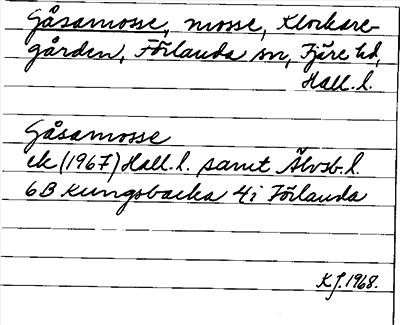 Gåsamosse, mosse, Klockare-
gården, Förlanda sn, Fjäre hd,
Hall. l.
Gåsamosse
ek (1967) Hall. l. samt Älvsb. l.
6B Kungsbacka 4i Förlanda
K J. 1968.